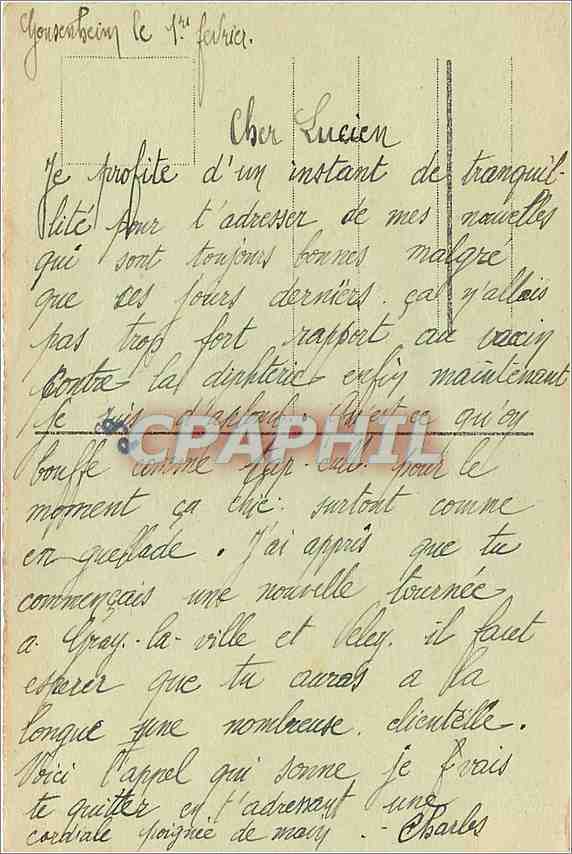 Gonsenheim le 1er fevrier.
Cher Lucien
Je profite d'un instant de tranquil-
lité pour t'adresser de mes nouvelles
qui sont toujours bonnes malgré
que ces jours derniers. ça n'allais
pas trop fort rapport au vaccin
contre la diphterie enfin maintenant
je suis d'aplomb. qu'on
CPAPHIL
bouffe comme pour le
moment ça surtout comme
en . J'ai appris que tu
commençais une nouvelle tournée
a Gray-la-ville et Veley. il faut
esperer que tu auras a la
longue une nombreuse clientelle.
Voici l'appel qui sonne je vais
te quitter en t'adressant une
cordiale poignée de main. - Charles